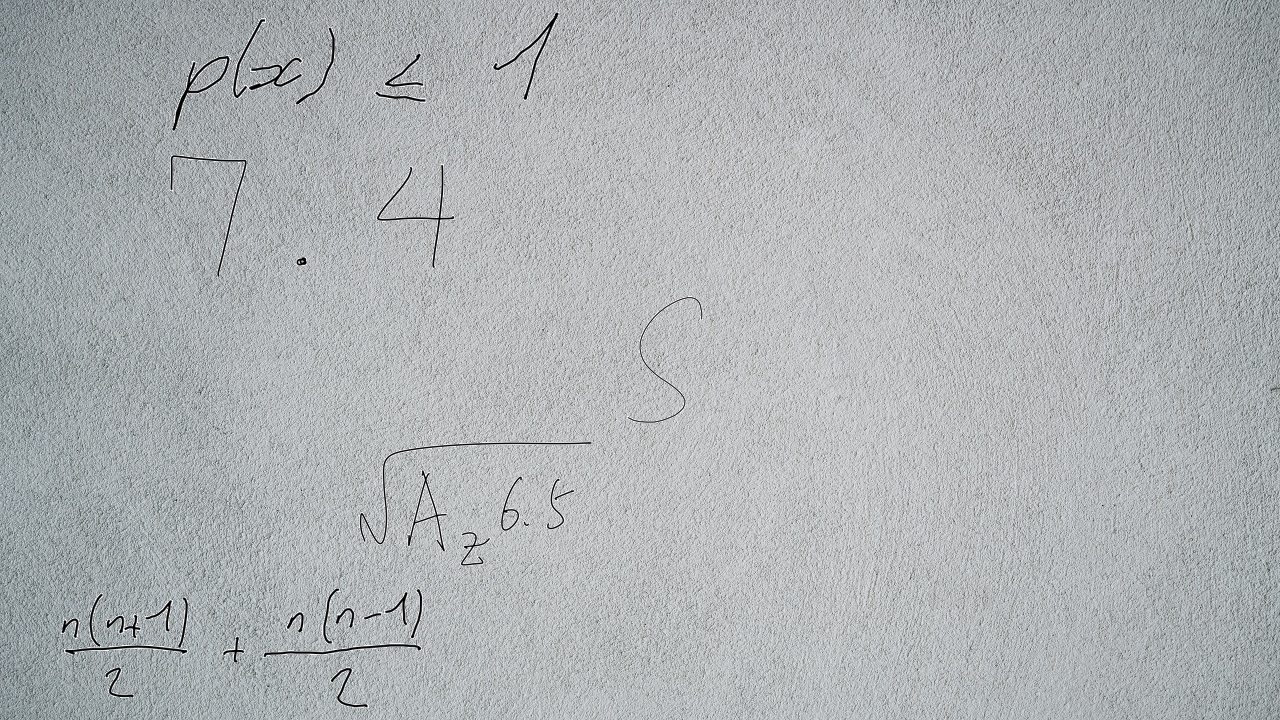 p(x) ≤ 1
7.4
S
√(A_z 6.5)
n(n+1)/2 + n(n-1)/2